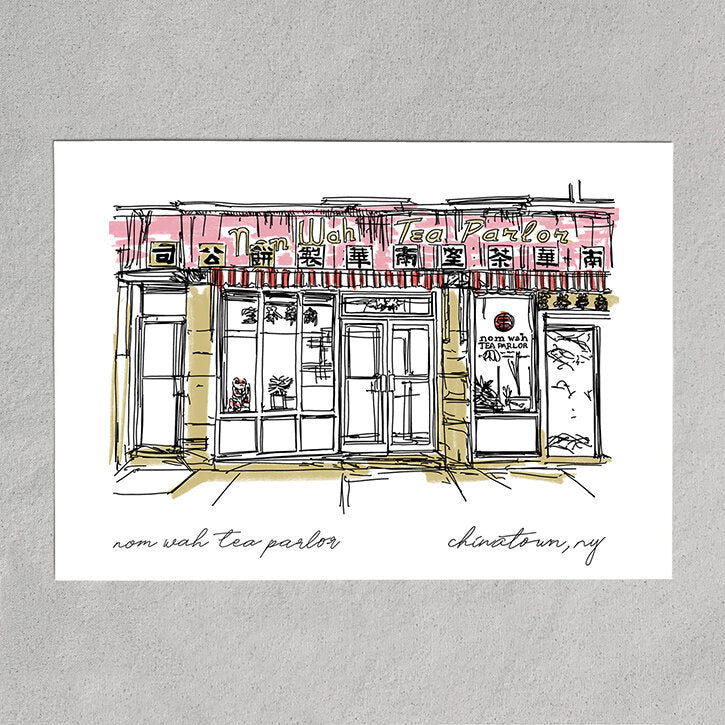 Nom Wah Tea Parlor
南華茶室南華製餅公司
nom wah
TEA PARLOR
nom wah tea parlor
chinatown, ny